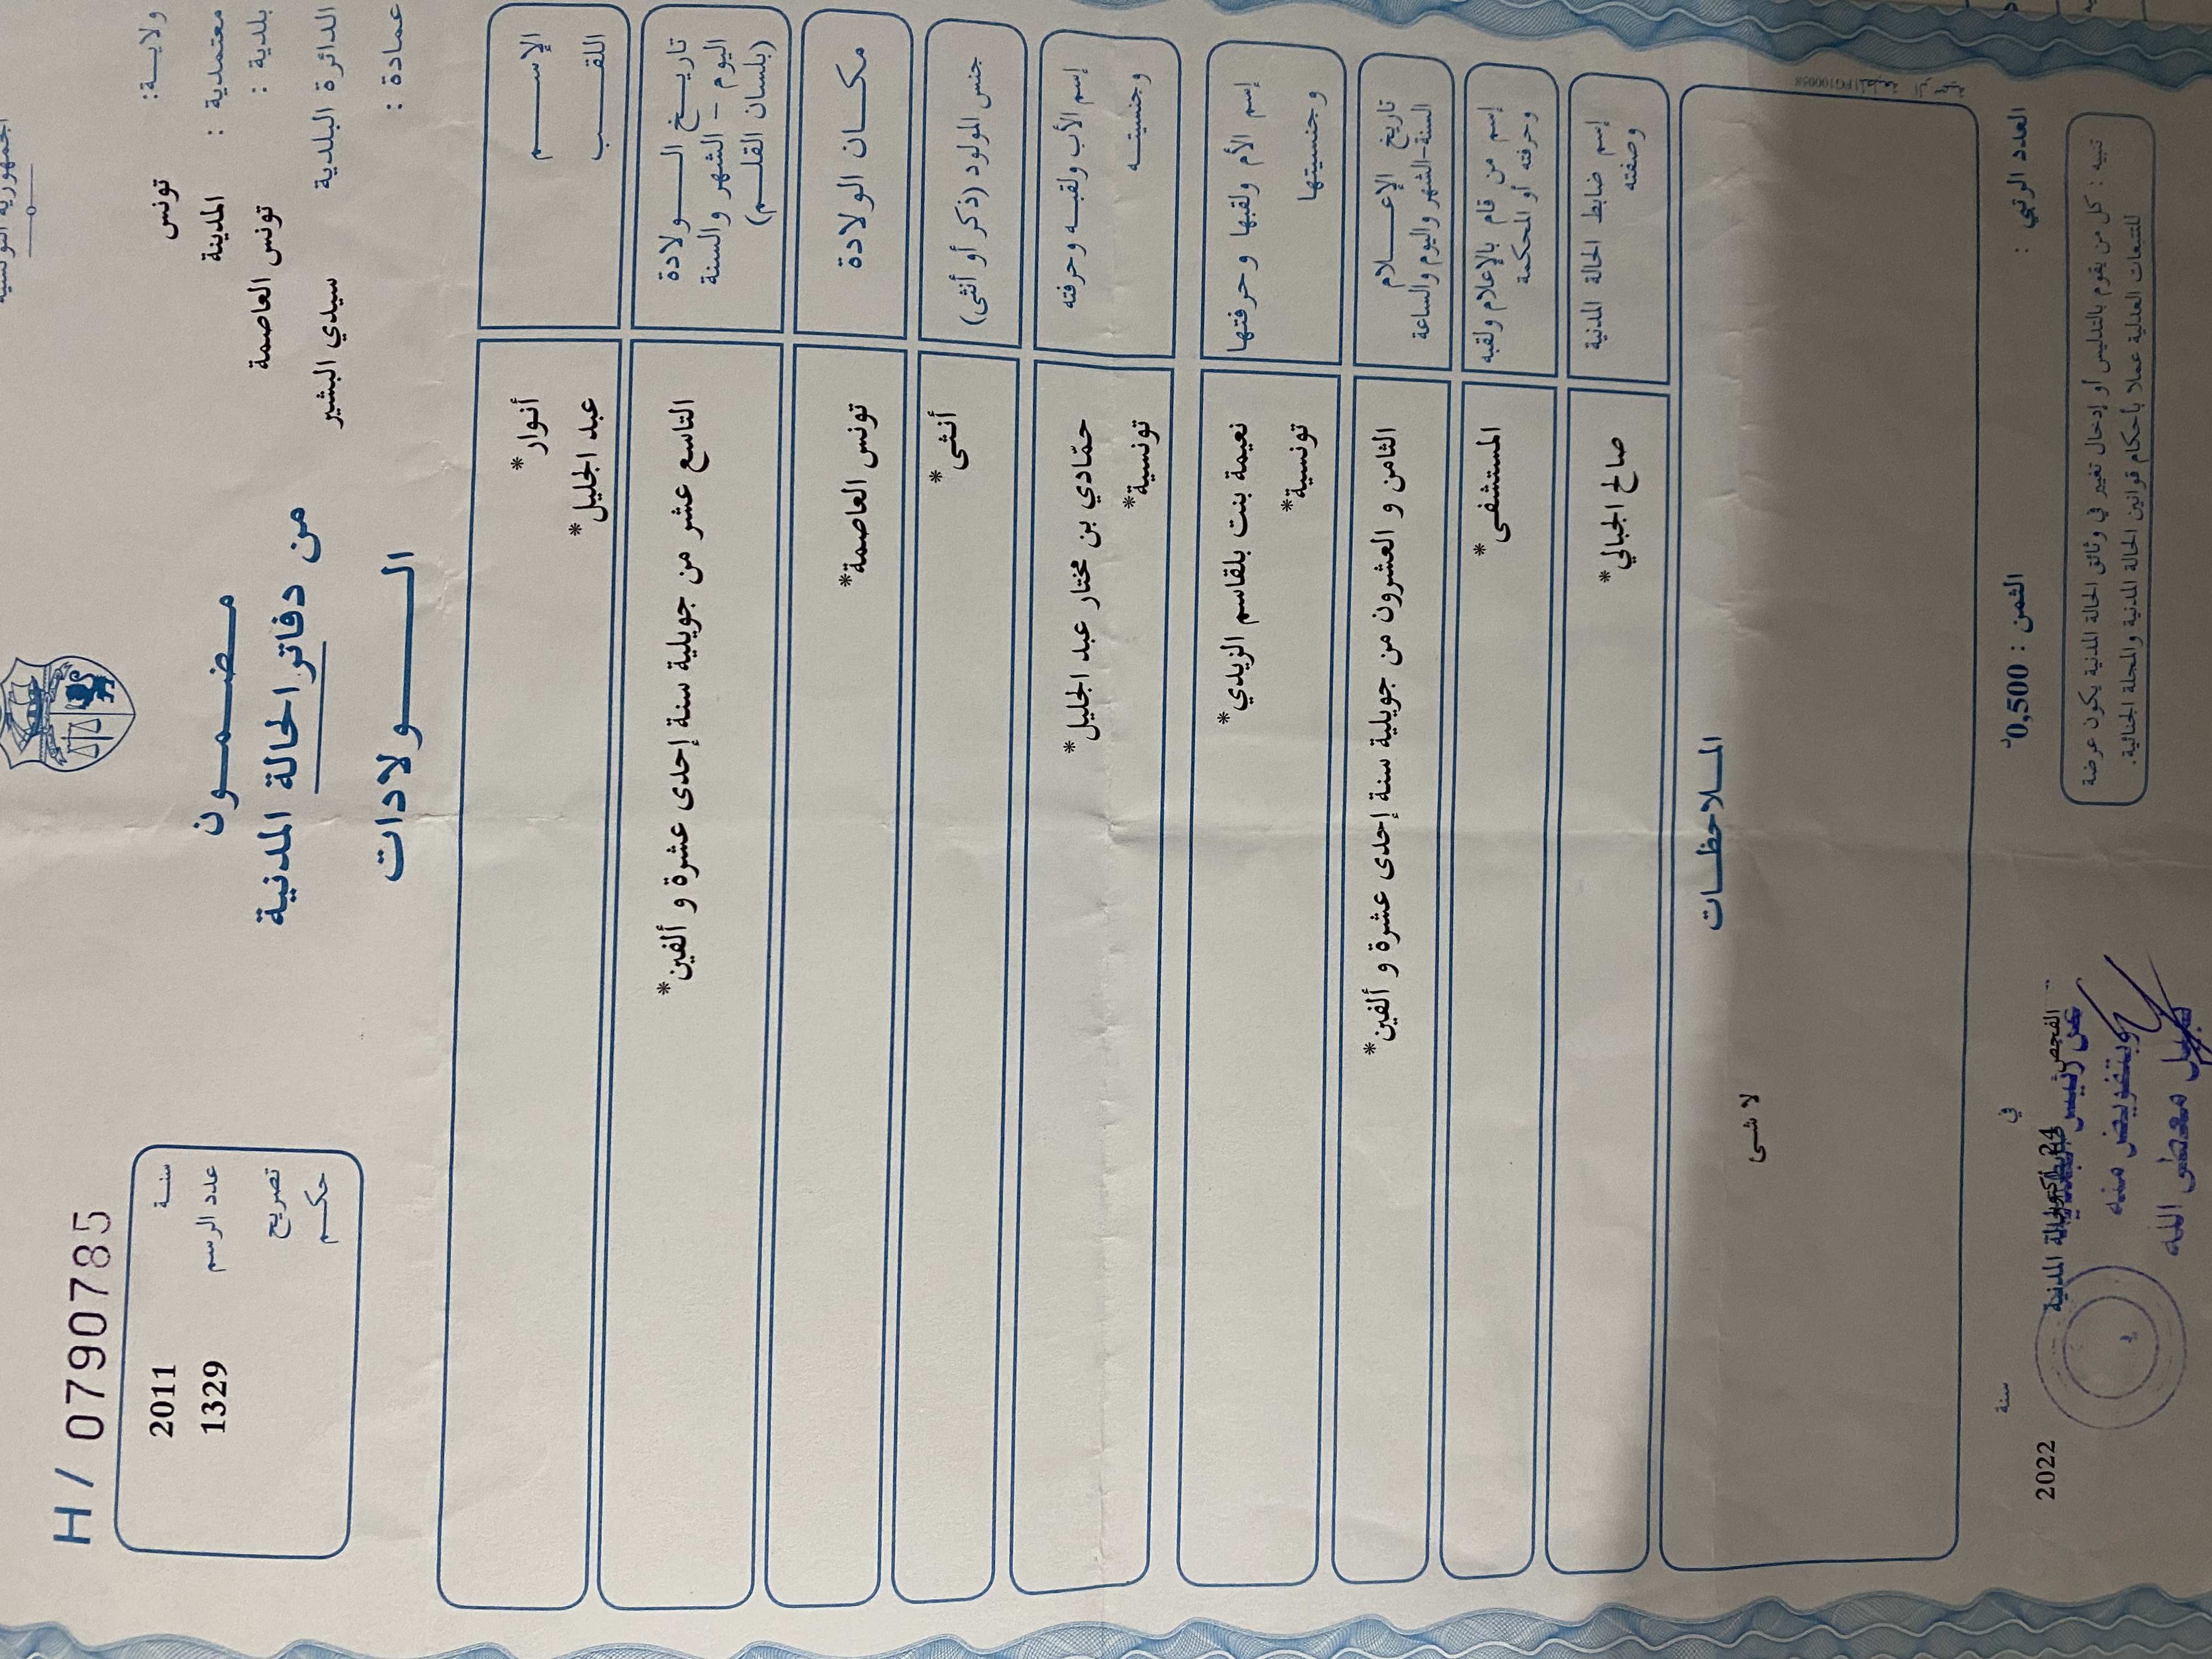 الجمهورية التونسية
H / 0790785
ولايــة: تونس
معتمدية : المدينة
بلدية : تونس العاصمة
الدائرة البلدية سيدي البشير
عمادة :
سنــة 2011
عدد الرسم 1329
تصريح
حكــم
مـضـمــون
من دفاتر الحالة المدنية
الــولادات
الإســـم أنوار*
اللقـــب عبد الجليل*
تاريــخ الــولادة
اليوم – الشهر والسنة
(بلسان القلــم)
التاسع عشر من جويلية سنة إحدى عشرة و ألفين*
مكــان الولادة تونس العاصمة*
جنس المولود (ذكر أو أنثى) أنثى*
إسم الأب ولقبـه وحرفته حمّادي بن مختار عبد الجليل*
وجنسيتــه تونسية*
إسم الأم ولقبها وحرفتها نعيمة بنت بلقاسم الزيدي*
وجنسيتها تونسية*
تاريخ الإعــلام
السنة-الشهر واليوم والساعة
الثامن و العشرون من جويلية سنة إحدى عشرة و ألفين*
إسم من قام بالإعلام ولقبه
وحرفته أو المحكمة
المستشفى*
إسم ضابط الحالة المدنية
وصفته
صالح الجبالي*
المــلاحظــات
لا شئ
العدد الرتبي :
الثمن : 0,500د
في
24
سنة
2022
تنبيه : كل من يقوم بالتدليس أو إدخال تغيير في وثائق الحالة المدنية يكون عرضة
للتتبعات العدلية عملا بأحكام قوانين الحالة المدنية والمجلة الجنائية.
الحالة المدنية
عن رئيس
وبتفويض منه
معطى الله